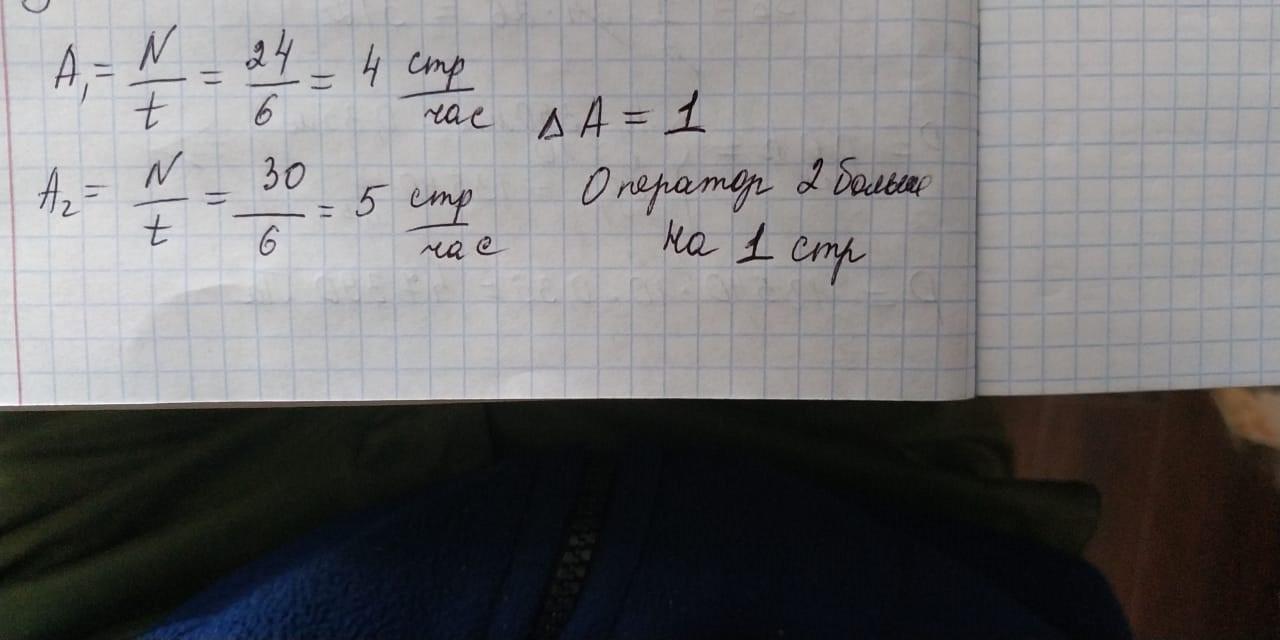 A₁ = N/t = 24/6 = 4 стр/час
ΔA = 1
A₂ = N/t = 30/6 = 5 стр/час
Оператор 2 больше
на 1 стр